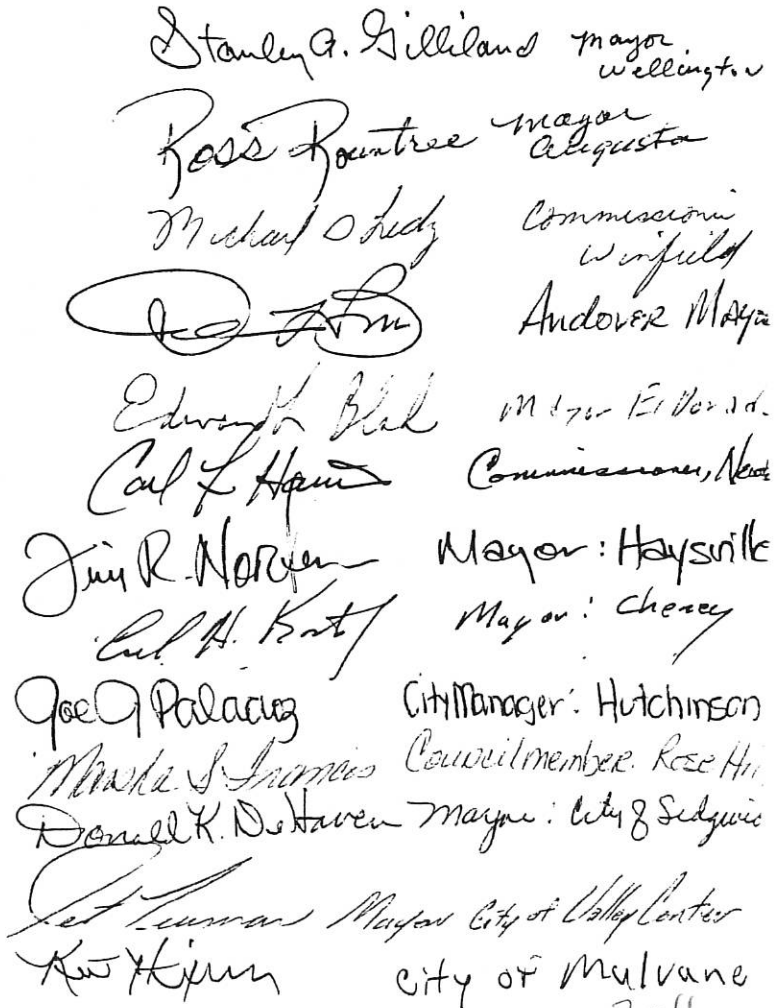 Stanley A. Gilliland Mayor
Wellington
Ross Rountree Mayor
Augusta
Michael D Commissioner
Winfield
Andover Mayo
Edward Mayor El Dorado
Carl L Commissioner, New
Jim R. Norton Mayor: Haysville
Carl H. Koster Mayor: Cheney
Joe J Palacioz City Manager: Hutchinson
Marsha S Francis Councilmember. Rose Hi
Donald K. DeHaven Mayor: City of Sedgwic
Mayor City of Valley Center
City of Mulvane